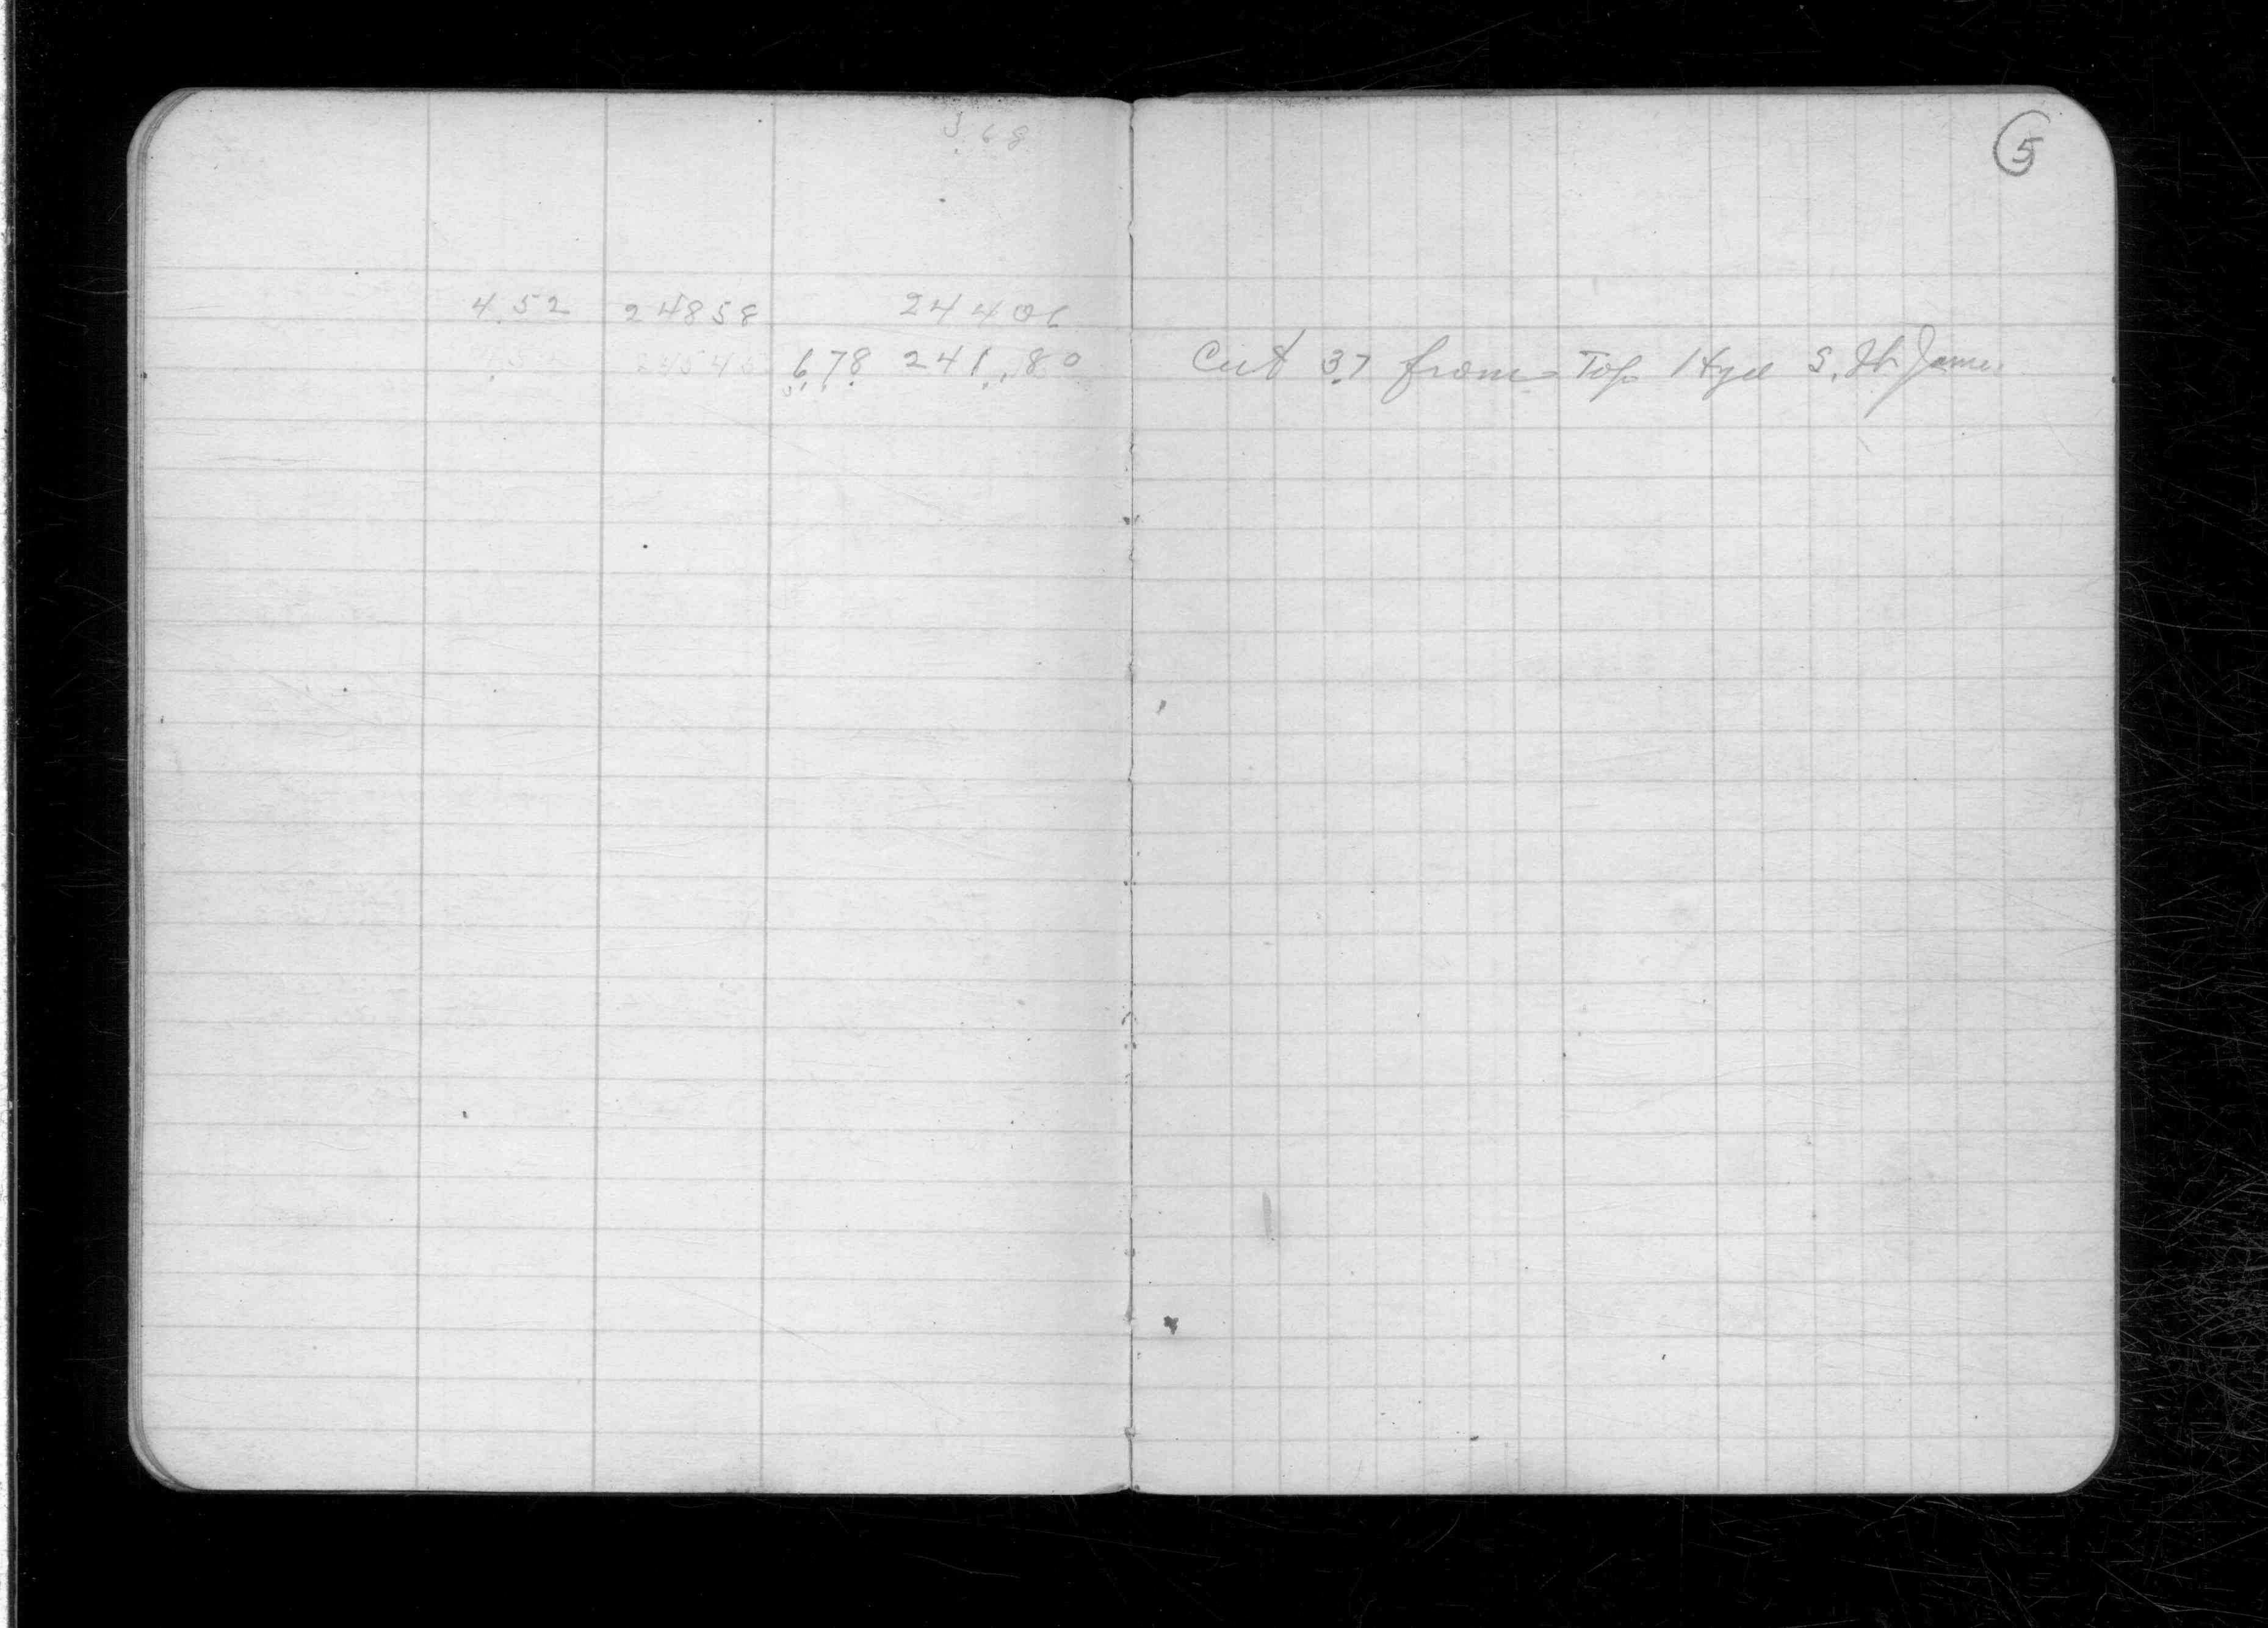 3.68
5
4.52 24858 24406
678 241.80
Cut 3.7 from Top Hyd S. St. James